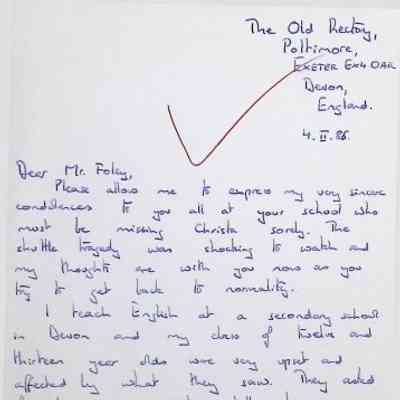 The Old Rectory,
Poltimore,
EXETER EX4 0AR
Devon,
England.
4.II.86.
Dear Mr. Foley,
Please allow me to express my very sincere
condolences to you all at your school who
must be missing Christa sorely. The
shuttle tragedy was shocking to watch and
my thoughts are with you now as you
try to get back to normality.
I teach English at a secondary school
in Devon and my class of twelve and
thirteen year olds were very upset and
affected by what they saw. They asked